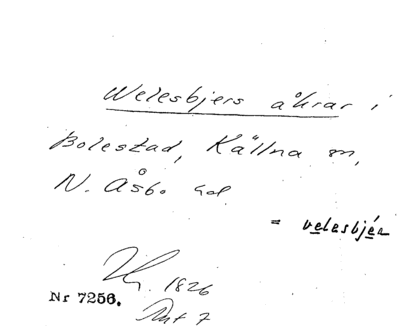 Welesbjers åkrar i
Bolestad, Källna sn,
N. Åsbo hd.
= velesbjér
1826
Nr 7256.
Akt 7